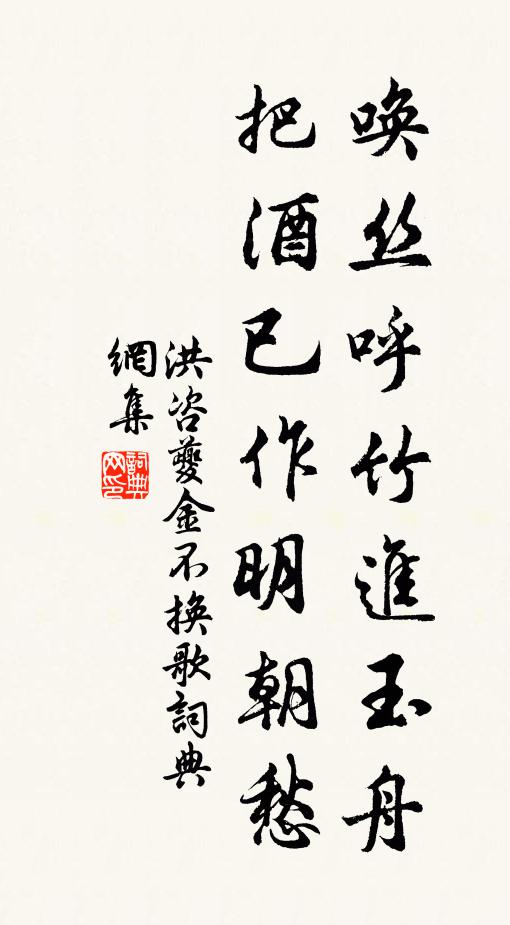 喚丝呼竹進玉舟
把酒已作明朝愁
洪咨夔金不换歌詞典
網集
詞典网印